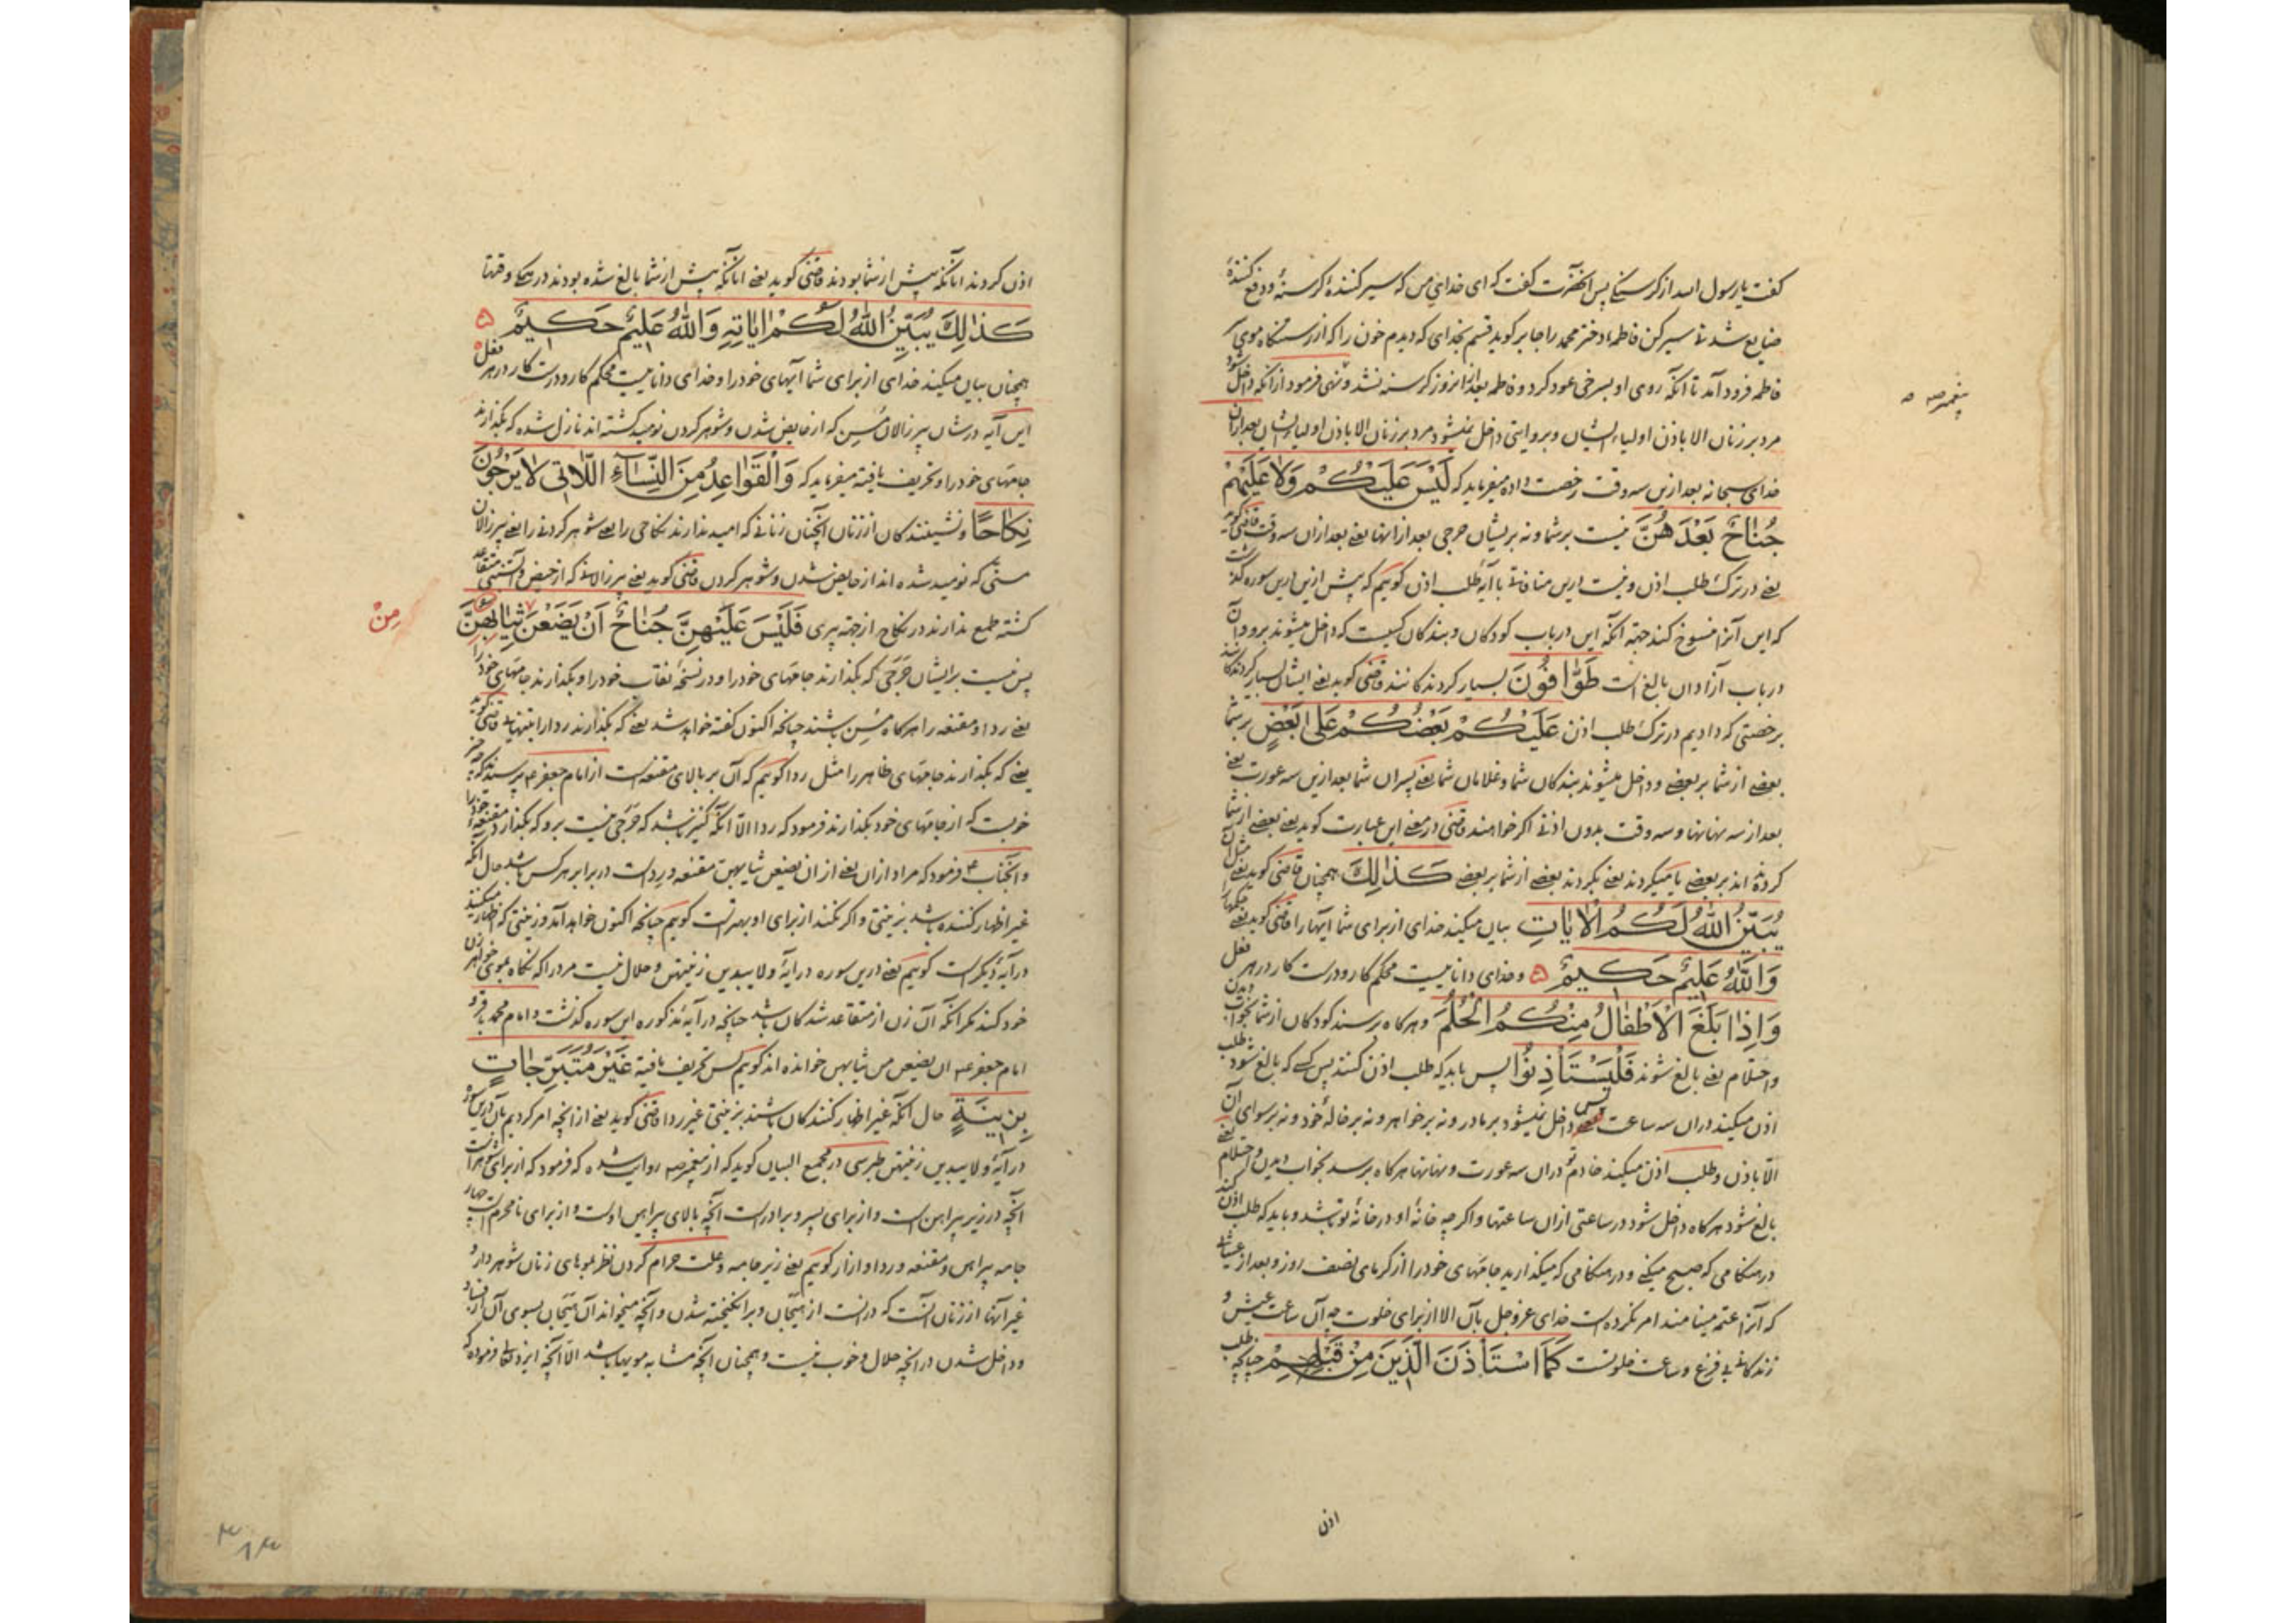 کفت یا رسول الله از کرسنکی پس آنحضرت کفت که ای خدای من که سیر کننده کرسنه و دفع کننده
ضایع شدنی سیر کن فاطمه دختر محمد را جابر کوید قسم بخدای که دیدم خون را که از رستنکاه موی
فاطمه فرود آمد تا آنکه روی او بسرخی عود کرد و فاطمه بعد از انروز کرسنه نشد و نهی فرمود از آنکه داخل شود
پیغمبر صه
مرد بر زنان الا باذن اولیاء ایشان و بروایتی داخل نمیشود مرد بر زنان الا باذن اولیاء ایشان بعد از آن
خدای سبحانه بعد ازین سه وقت رخصت داده میفرماید که لَیْسَ عَلَیْکُمْ وَلا عَلَیْهِمْ
جُناحٌ بَعْدَهُنَّ نیست بر شما و نه بر ایشان حرجی بعد از انها یعنی بعد از ان سه وقت قاضی کوید
یعنی در ترک طلب اذن و نیست درین منافاتی با آیه طلب اذن کوییم که پیش ازین درین سوره
که این آنرا منسوخ کند جهة آنکه این در باب کودکان و بندکان کسیست که داخل میشوند برو و آن
در باب آزادان بالغ است طَوّافُونَ بسیار کردندکانند قاضی کوید یعنی ایشان بسیار کردندکانند
برخصتی که دادیم در ترک طلب اذن عَلَیْکُمْ بَعْضُکُمْ عَلی بَعْضٍ بر شما
بعضی از شما بر بعضی و داخل میشوند بندکان شما و غلامان شما یعنی پسران شما بعد ازین سه عورت یعنی
بعد از سه بنهانها و سه وقت بدون اذنی اکر خواهند قاضی در معنی این عبارت کوید یعنی بعضی از شما
کردنده اند بر بعضی یا میکردند یعنی بکردند بعضی از شما بر بعضی کَذلِكَ همچنان قاضی کوید یعنی مثل آن
یُبَیِّنُ اللهُ لَکُمُ الْایاتِ بیان میکند خدای از برای شما آیتها را قاضی کوید یعنی حکمها را
وَاللهُ عَلیمٌ حَکیمٌ و خدای داناییست محکم کار و درست کار در هر فعل
وَاِذا بَلَغَ الْاَطْفالُ مِنْکُمُ الْحُلُمَ و هرکاه برسند کودکان از شما بخواب دیدن
و احتلام یعنی بالغ شوند فَلْیَسْتَأْذِنُوا پس باید که طلب اذن کنند پس کسی که بالغ شود طلب
اذن میکند در ان سه ساعت پس داخل نمیشود بر مادر و نه بر خواهر و نه بر خاله خود و نه بر سوای آن
الّا باذن و طلب اذن میکند خادم تو در ان سه عورت و بنهانها هرکاه برسد بخواب دیدن و احتلام یعنی
بالغ شود هرکاه داخل شود در ساعتی از ان ساعتها و اکر چه خانه او در خانه تو باشد و باید که طلب اذن کند
در هنکامی که صبح میکنی و در هنکامی که میکذارید جامهای خود را از کرمای نصف روز و بعد از عشائی
که آنرا عتمه مینامند امر نکرده است خدای عز و جل بآن الا از برای خلوت چه آن ساعت عیش و
زندکانی بی فزع و ساعت خلوتست کَمَا اسْتَأْذَنَ الَّذینَ مِنْ قَبْلِهِمْ چنانچه طلب
اذن
اذن کردند آنانکه پیش از شما بودند قاضی کوید یعنی آنانکه پیش از شما بالغ شده بودند در همکی وقتها
کَذلِكَ یُبَیِّنُ اللهُ لَکُمْ ایاتِهِ وَاللهُ عَلیمٌ حَکیمٌ
همچنان بیان میکند خدای از برای شما آیتهای خود را و خدای داناییست محکم کار و درست کار در هر فعل
این آیه در شان پیر زالان مسن که از حایض شدن و شوهر کردن نومید کشته اند نازل شده که بکذارند
جامهای خود را و تحریف یافته میفرماید که وَالْقَواعِدُ مِنَ النِّساءِ اللّاتی لا یَرْجُونَ
نِکاحًا و نشینندکان از زنان آنچنان زنانی که امید ندارند نکاحی را یعنی شوهر کردنی را یعنی پیرزالان
مسنّی که نومید شده اند از حایض شدن و شوهر کردن قاضی کوید یعنی پیر زالانی که از حیض و آبستنی متقاعد
کشته طمع ندارند در نکاح از جهة پیری فَلَیْسَ عَلَیْهِنَّ جُناحٌ اَنْ یَضَعْنَ ثِیابَهُنَّ
مِنْ
پس نیست بر ایشان حرجی که بکذارند جامهای خود را و در نسخه نقاب خود را و بکذارند جامهای خود را
یعنی ردا و مقنعه را هرکاه مسن باشند چنانچه اکنون کفته خواهد شد یعنی که بکذارند ردا را بتنهایی قاضی کوید
یعنی که بکذارند جامهای ظاهر را مثل ردا کوییم که آن بر بالای مقنعه است از امام جعفر ع پرسیدند که چه چیز
خوبست که از جامهای خود بکذارند فرمود که ردا الّا آنکه کنیز باشد که حرجی نیست برو که بکذارد مقنعه خود را
و آنجناب ع فرمود که مراد از ان یعنی از ان یضعن ثیابهن مقنعه و رداست در برابر هر کس باشد حال آنکه
غیر اظهار کننده باشد بزینتی و اکر نکند از برای او بهتر است کوییم چنانچه اکنون خواهد آمد و زینتی که اظهار میکنند
در آیه دیکر است کوییم یعنی درین سوره در آیه و لا یبدین زینتهن و حلال نیست مرد را که نکاه بموی خواهر زن
خود کند مکر آنکه آن زن از متقاعد شدکان باشد چنانچه در آیه مذکوره این سوره کذشت و امام محمد باقر و
امام جعفر ع ان یضعن من ثیابهن خوانده اند کوییم پس تحریف یافته غَیْرَ مُتَبَرِّجاتٍ
بِزینَةٍ حال آنکه غیر اظهار کنندکان باشند بزینتی غیر ردا قاضی کوید یعنی از آنچه امر کردیم بآن درین سوره
در آیه و لا یبدین زینتهن طبرسی در مجمع البیان کوید که از پیغمبر صه روایت شده که فرمود که از برای شوهر است
آنچه در زیر پیراهن است و از برای پسر و برادر است آنچه بالای پیراهن اوست و از برای نامحرم است چهار
جامه پیراهن و مقنعه و ردا و ازار کوییم یعنی زیر جامه و علت حرام کردن نظر بموهای زنان شوهر دار و
غیر آنها از زنان آنست که در انست از هیجان و برانکیخته شدن و آنچه میخواند آن هیجان بسوی آن از فساد
و داخل شدن در آنچه حلال و خوب نیست و همچنان آنچه مشابه مویها باشد الّا آنچه ایزد تعالی فرموده که